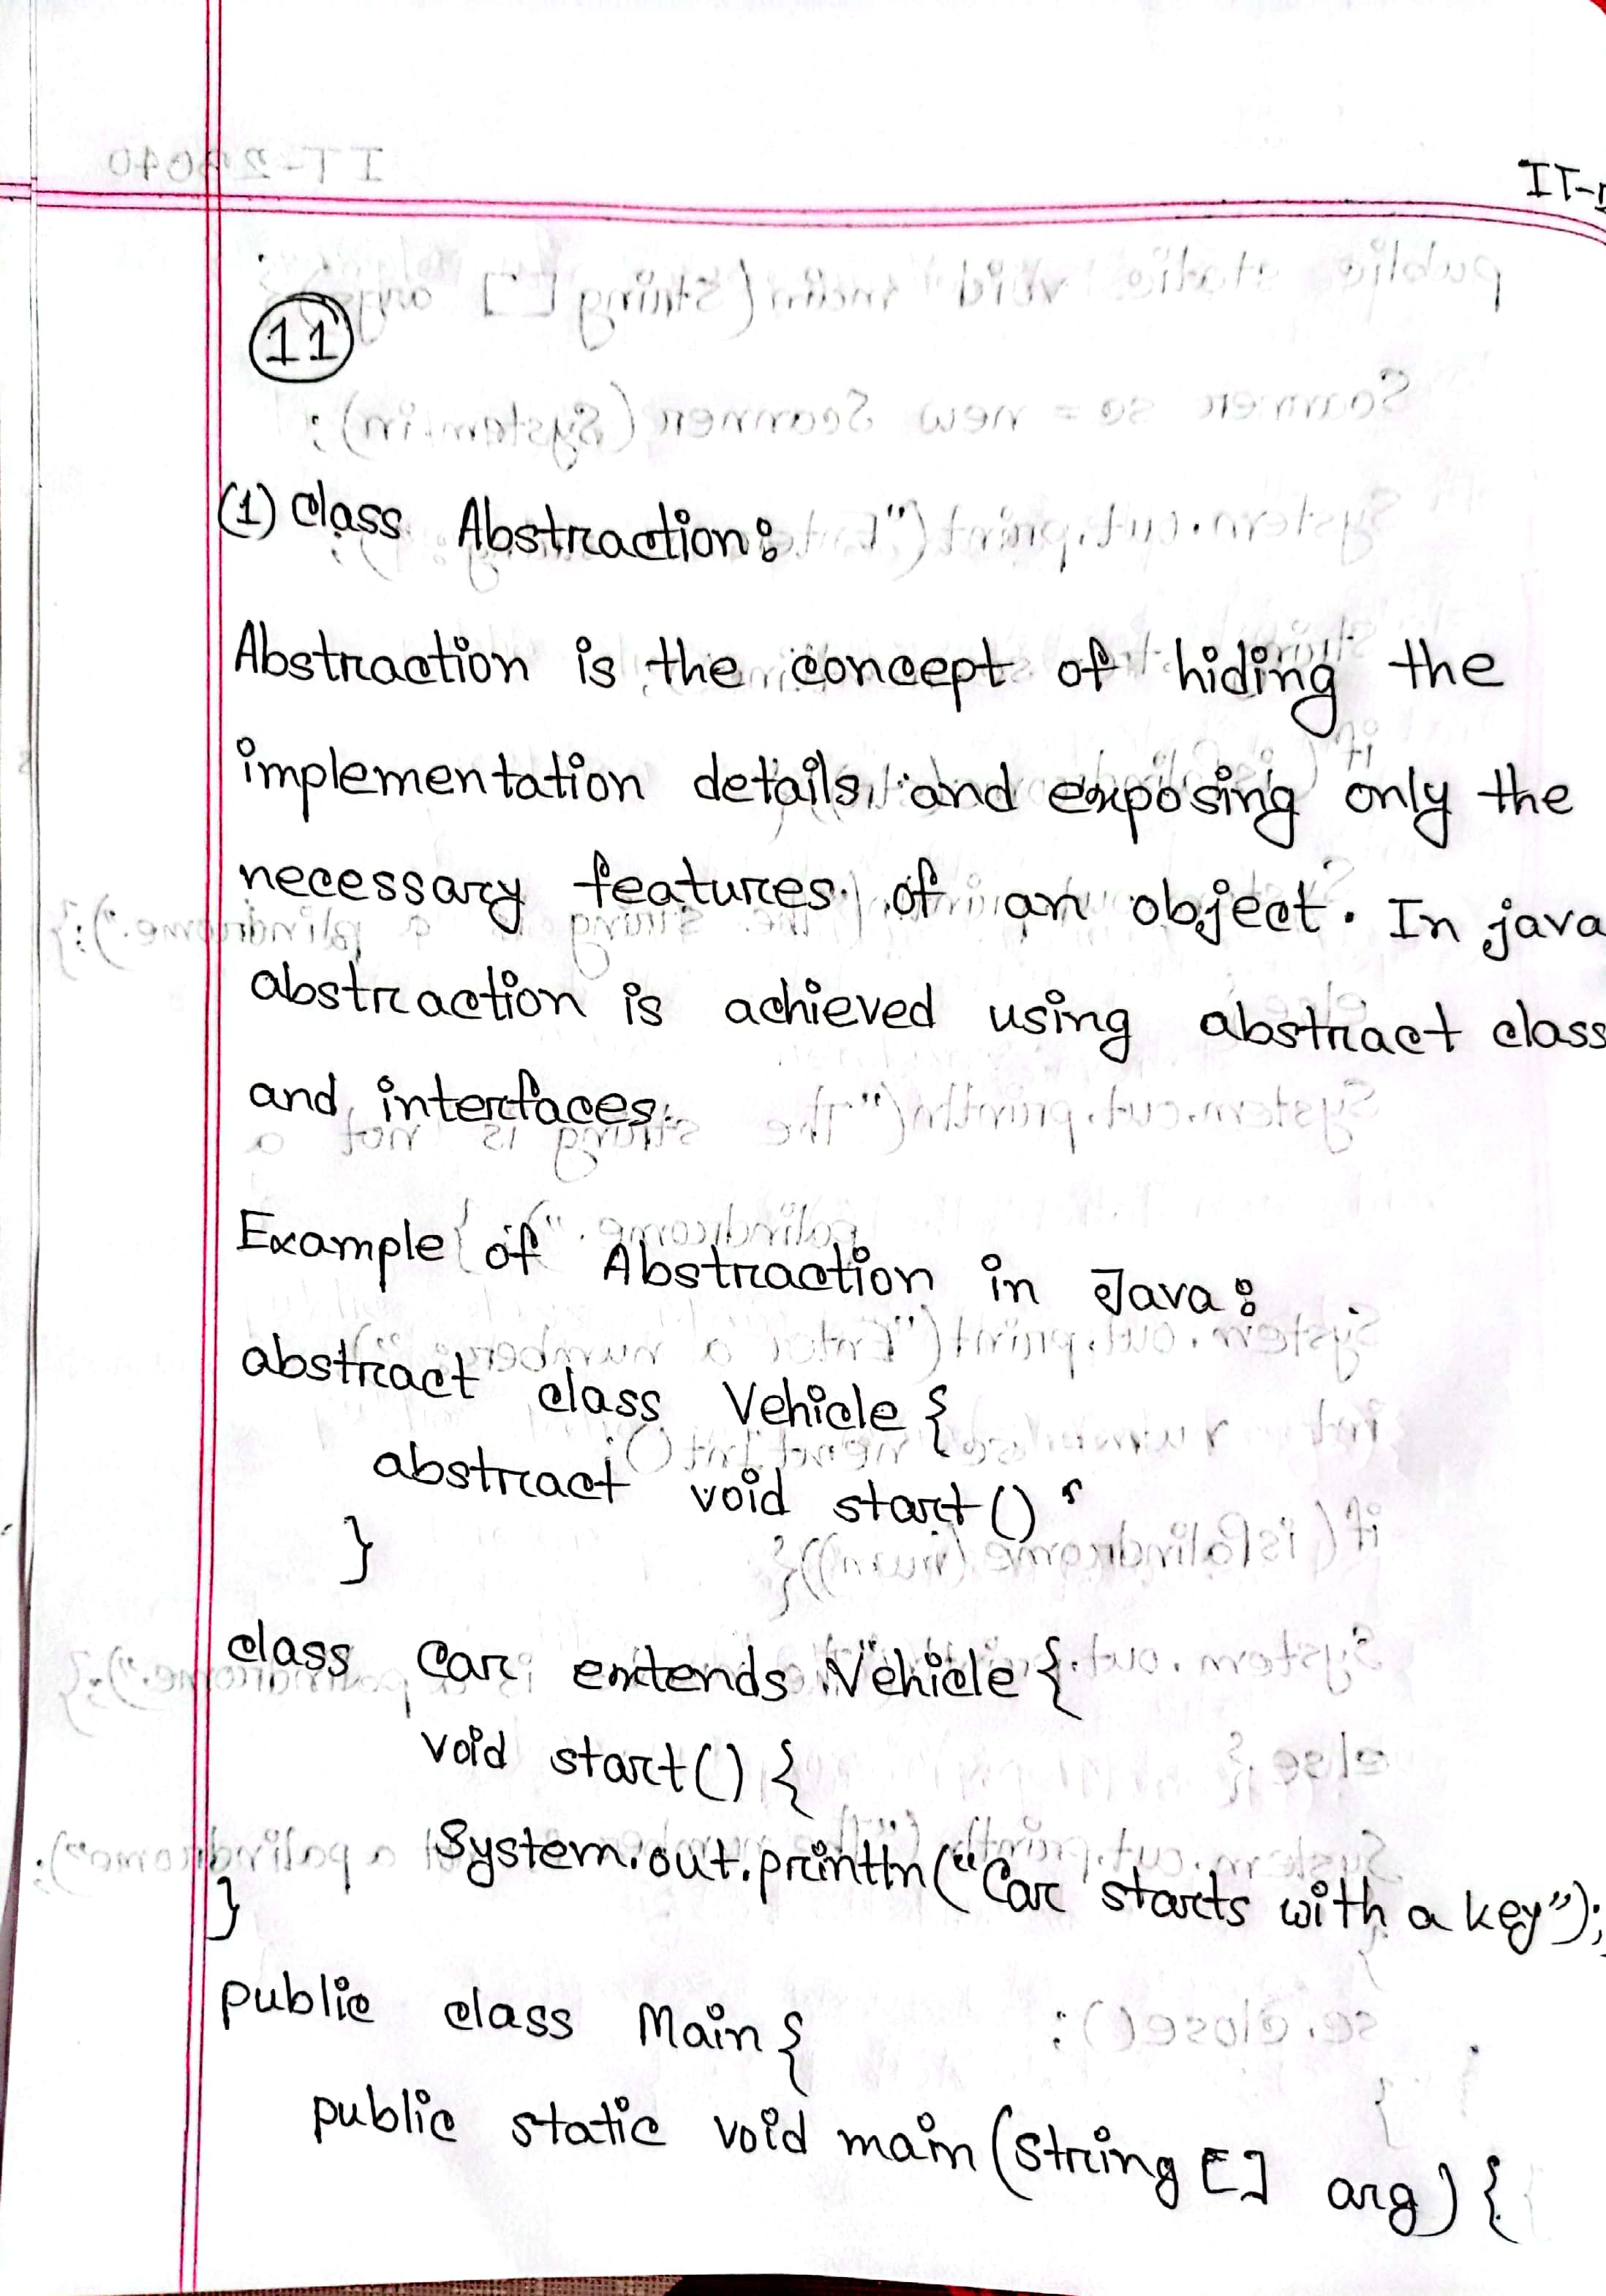 IT-
11
(1) Class Abstraction:
Abstraction is the concept of hiding the
implementation details, and exposing only the
necessary features of an object. In java
abstraction is achieved using abstract class
and interfaces.
Example of Abstraction in Java:
abstract class Vehicle {
abstract void start()
}
class Car extends Vehicle {
void start() {
System.out.println("Car starts with a key");
}
public class Main {
public static void main(string [] arg) {